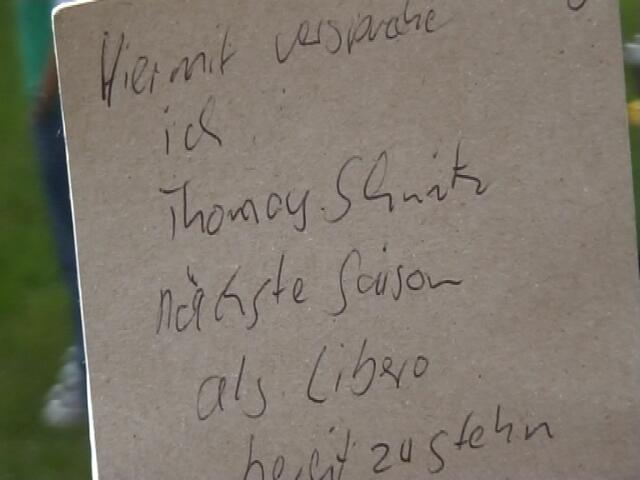 Hiermit verspreche
ich
Thomas Schmitz
nächste Saison
als Libero
bereit zu stehn